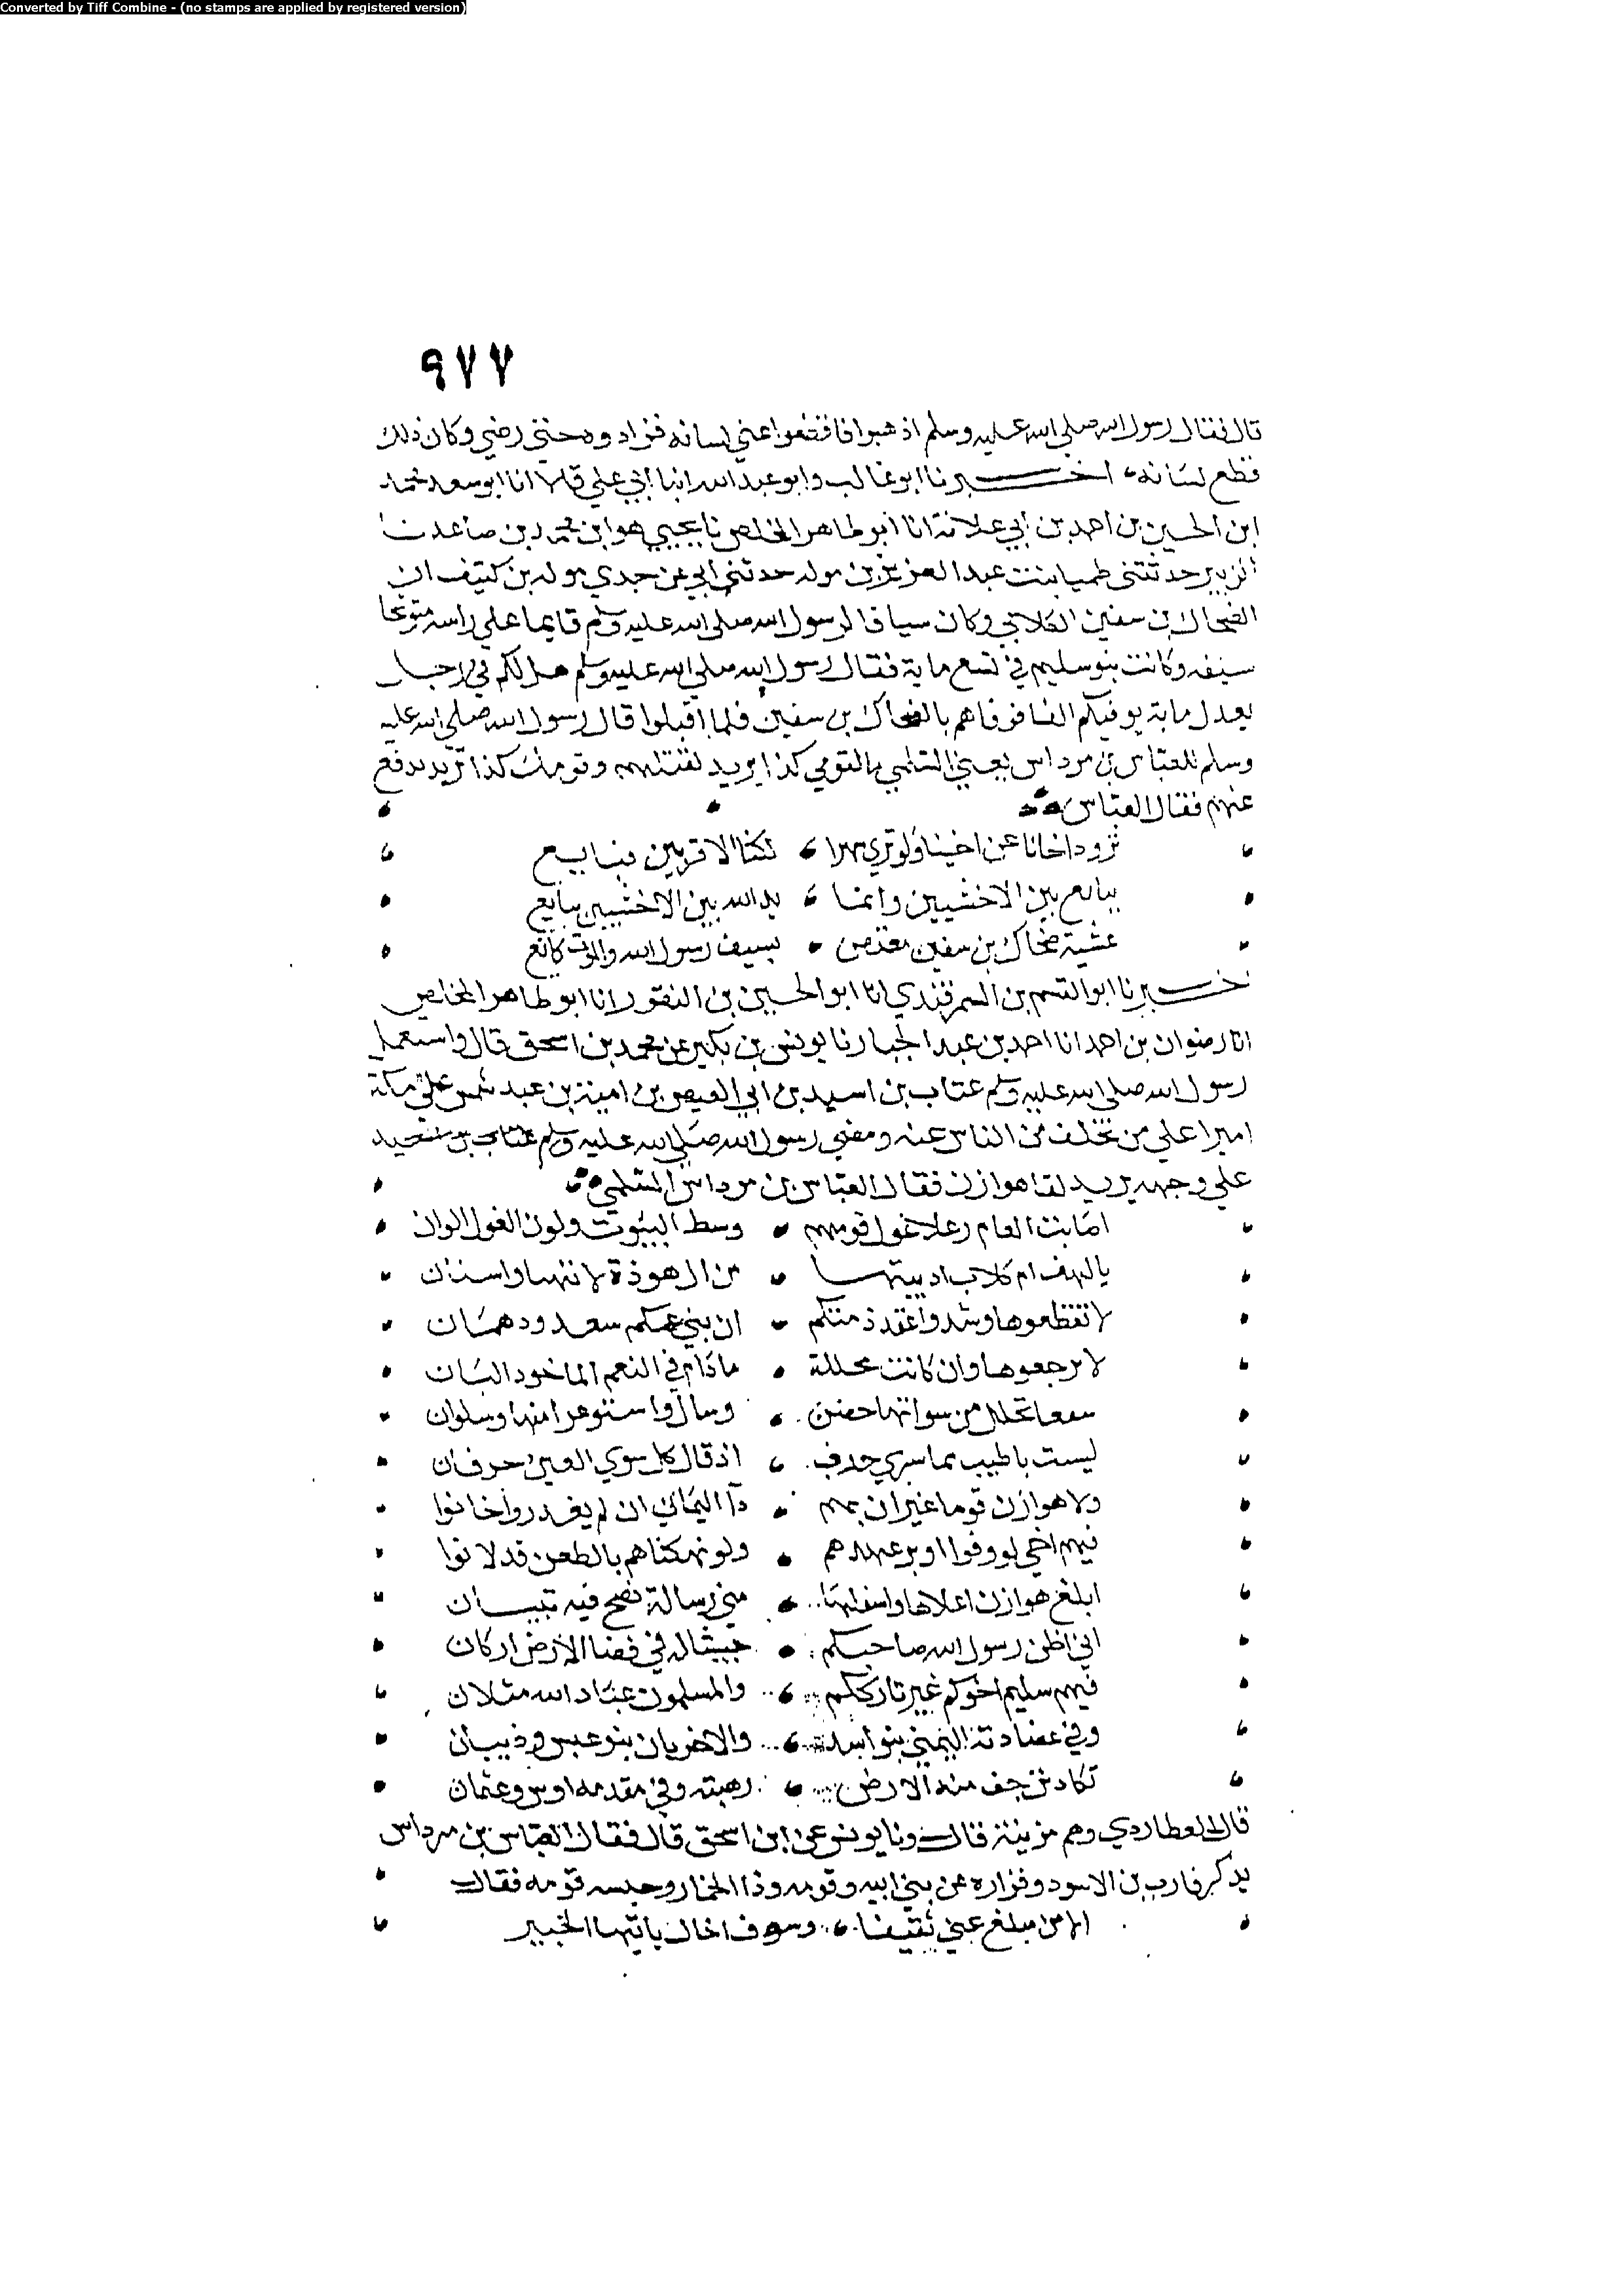 Converted by Tiff Combine - (no stamps are applied by registered version)
٩٧٧
قال فقال رسول الله صلى الله عليه وسلم اذهبوا فاقطعوا عني لسانه فزادوه حتى رضي وكان ذلك
قطع لسانه اخبرنا ابو غالب وابو عبد الله ابنا ابي علي قالا انا ابو سعد محمد
ابن الحسين بن احمد بن ابي علانة انا ابو طاهر المخلص نا يحيي هو ابن محمد بن صاعد نا
الزبير حدثتني ظميا بنت عبد العزيز بن موله حدثني ابي عن جدي موله بن كثيف ان
الضحاك بن سفين الكلابي وكان سيافا لرسول الله صلى الله عليه وسلم قايما علي راسه متوشحا
سيفه وكانت بنو سليم في تسع ماية فقال رسول الله صلي الله عليه وسلم هل لكم في رجل
يعدل ماية يوفيكم الفا فوفاهم بالضحاك بن سفين فلما اقبلوا قال رسول الله صلى الله عليه
وسلم للعباس بن مرداس يعني السلمي ما لقومي كذا يريد تقتلهم وقومك كذا تريد تدفع
عنهم فقال العباس
نزود اخانا عن اخينا ولو نري مهزا لكنا الاقربين نبايع
يبايع بين الاخشبين وانما يد الله بين الاخشبين يبايع
عشية ضحاك بن سفين معتص بسيف رسول الله والموت كانع
اخبرنا ابو القسم بن السمرقندي انا ابو الحسين بن النقور انا ابو طاهر المخلص
انا رضوان بن احمد انا احمد بن عبد الجبار نا يونس بن بكير عن محمد بن اسحق قال واستعمل
رسول الله صلى الله عليه وسلم عتاب بن اسيد بن ابي العيص بن امية بن عبد شمس علي مكة
اميرا علي من تخلف من الناس عنه ومضي رسول الله صلي الله عليه وسلم
علي وجهه يريد لقا هوازن فقال العباس بن مرداس السلمي
اصابت العام رعلا غول قومهم وسط البيوت ولون الغول الوان
يا لهف ام كلاب اذ بيتها من ال هوذة لا تنها واسنان
لا تقطعوها وشدوا عقد ذمتكم ان بني عمكم سعد ودهمان
لا ترجعوها وان كانت محللة ما دام في النعم الماخوذ البان
من سواتها حضن وسال منها وسلوان
ليست باطيب مما اذ قال كل سوي العين حرفان
ولا هوازن قوما غير ان بهم دا اليماني ان لم يغدروا خانوا
فيهم اخي لو وفوا او بر عهدهم ولو نهكناهم بالطعن قد لانوا
ابلغ هوازن اعلاها واسفلها مني رسالة نصح فيه تبيان
اني اظن رسول الله صاحبكم جيشا له في فضا الارض اركان
فيهم سليم اخوكم غير تارككم والمسلمون عباد الله
وفي عضادته اليمني بنو اسد والاخربان بنو عبس وذبيان
تكاد ترجف منه الارض رهبته وفي مقدمه اوس وعثمان
قال العطاردي وهم مزينة قال ونا يونس عن ابن اسحق قال فقال العباس بن مرداس
يذكر قارب بن الاسود وفراره عن بني ابيه وقومه وذا الخمار وحبسه قومه فقال
الا من مبلغ عني ثقيفا وسوف اخال ياتيها الخبير